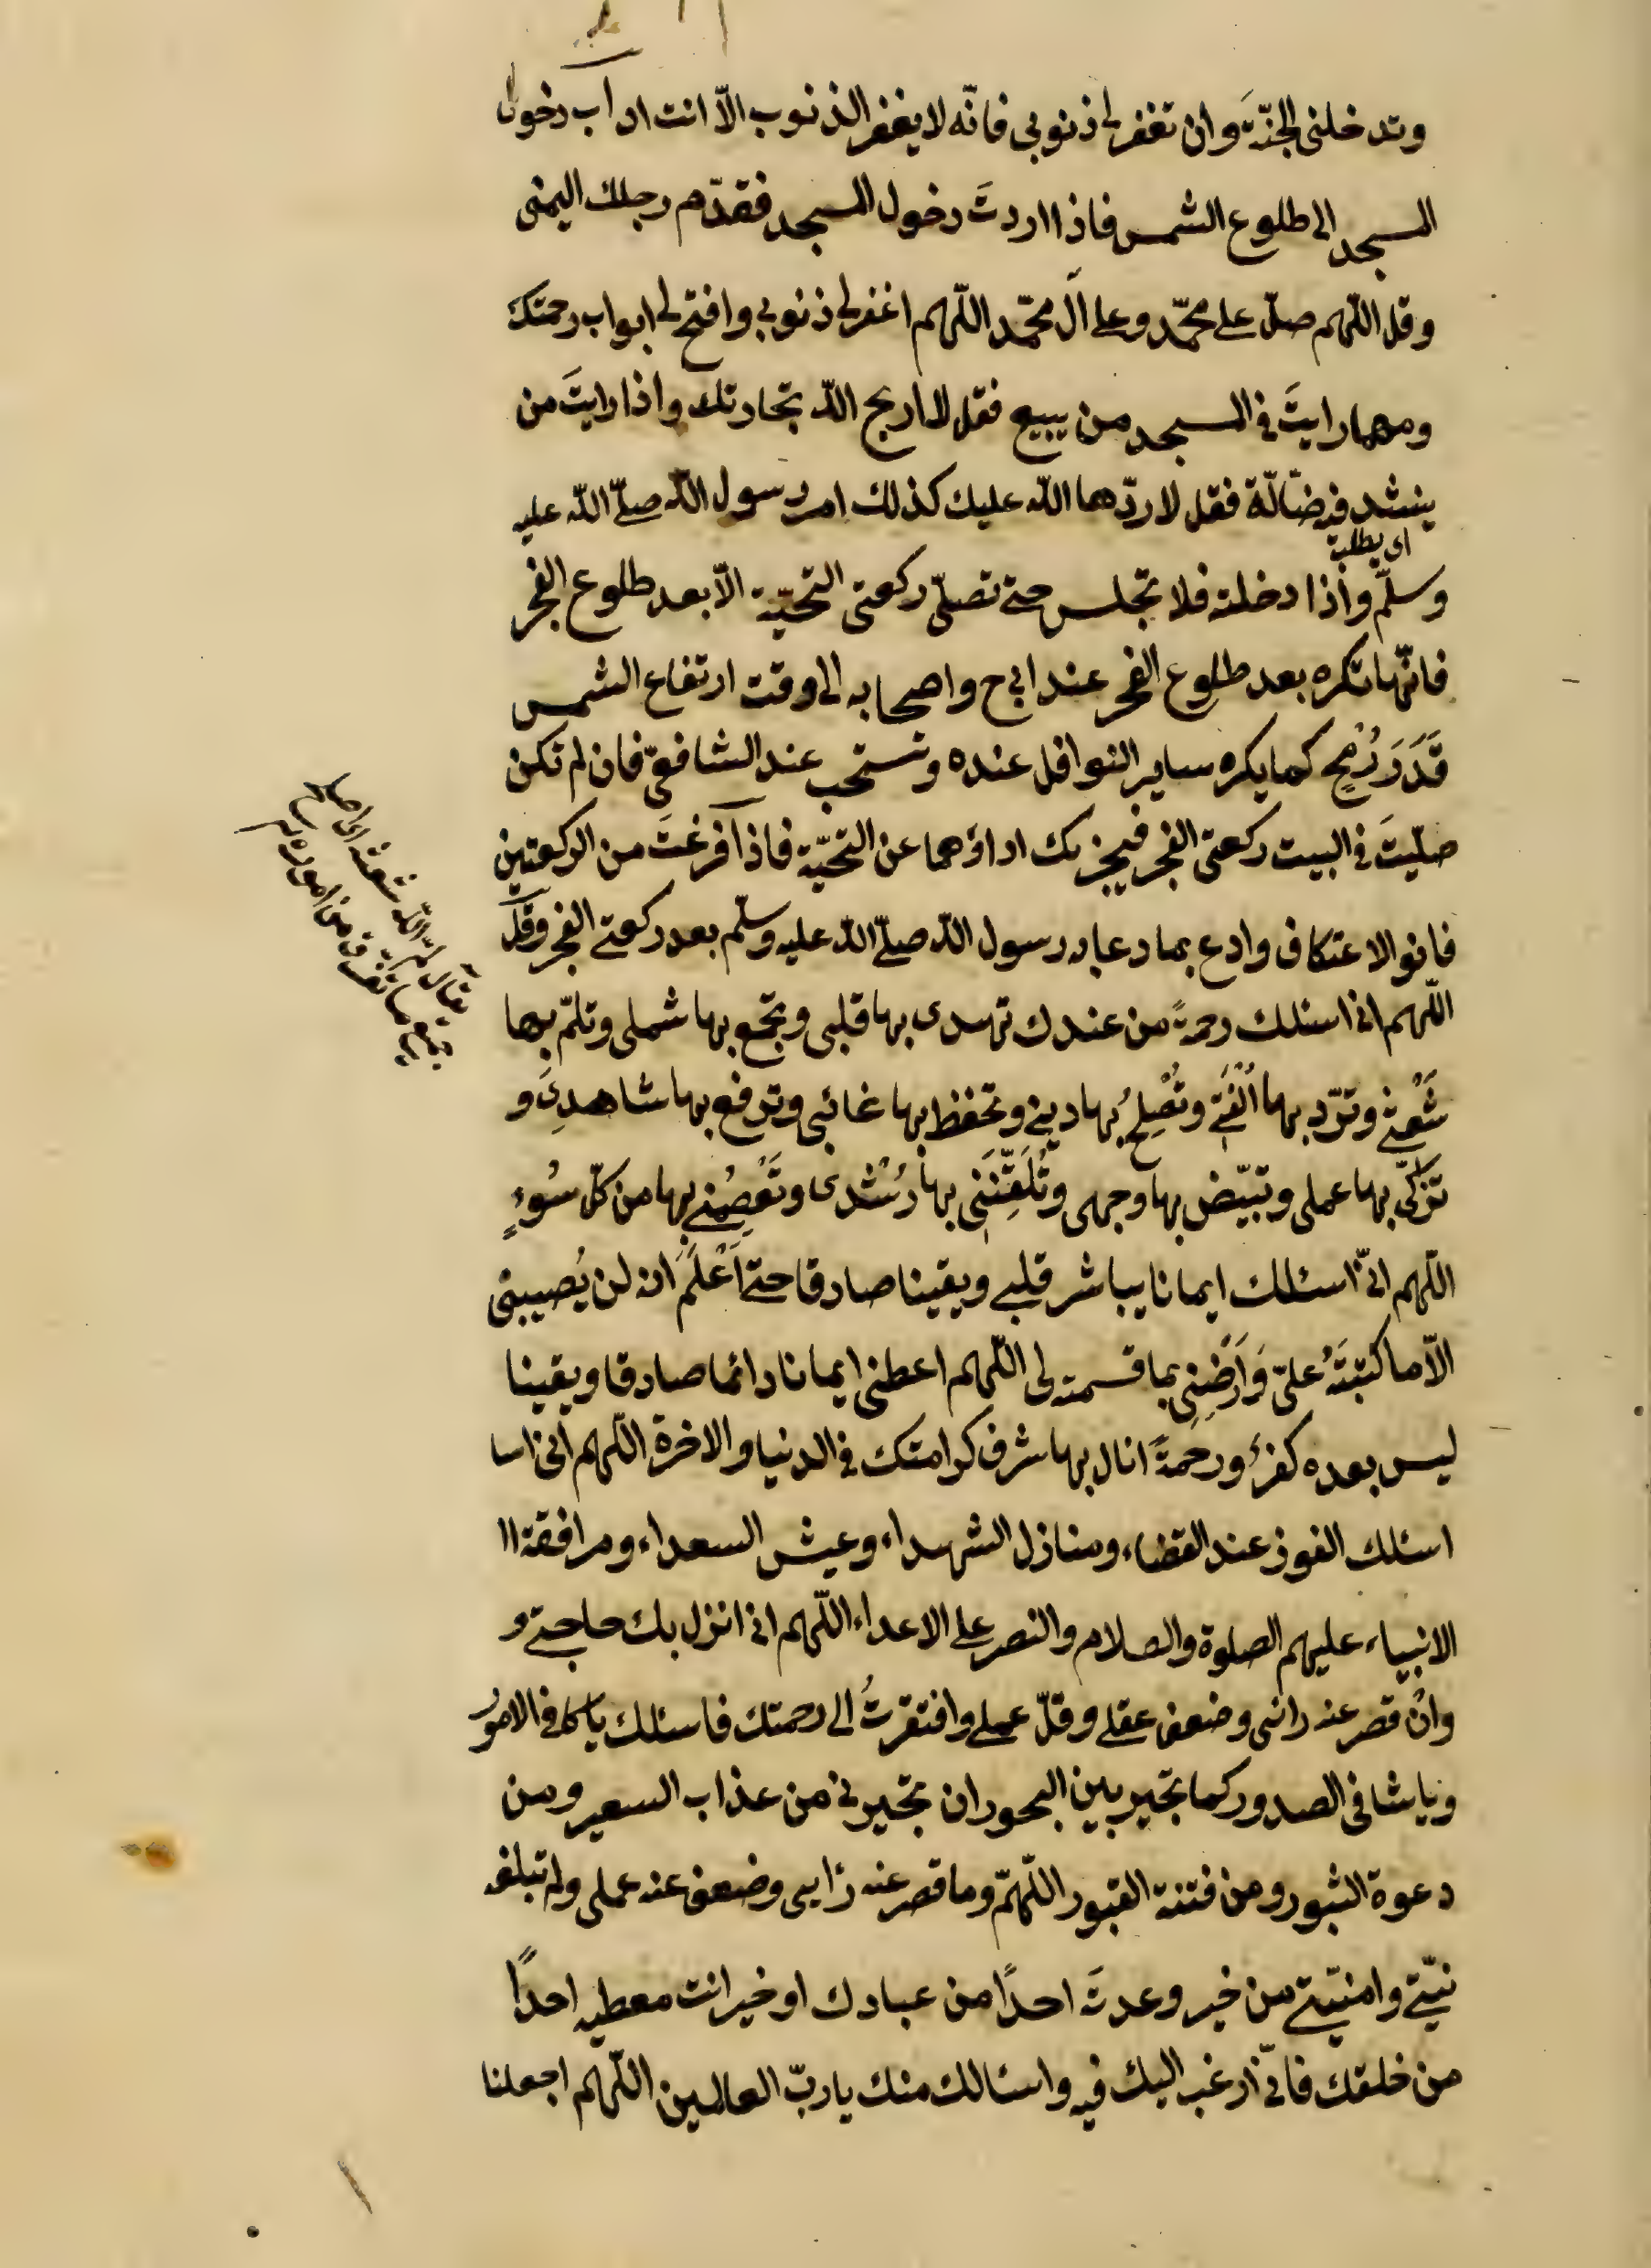 وتدخلنى الجنّةَ وان تغفر لى ذنوبى فانّه لا يغفر الذنوب الّا انت اداب دخول
المسجد الى طلوع الشمس فاذا اردتَ دخول المسجد فقدّم رجلك اليمنى
وقل اللّهم صلّ على محمّد وعلى آل محمّد اللّهم اغفر لى ذنوبى وافتح لى ابواب رحمتك
ومهما رايتَ فى المسجد من يبيع فقل لا اربح اللّه تجارتك واذا رايتَ من
ينشد فيه ضالّة فقل لا ردّها اللّه عليك كذلك امر رسول اللّه صلّى اللّه عليه
اى يطلب
وسلّم واذا دخلته فلا تجلس حتى تصلّى ركعتى التحيّة الّا بعد طلوع الفجر
فانّها تكره بعد طلوع الفجر عند ابى ح واصحابه الى وقت ارتفاع الشمس
قَدَرَ رُمْحٍ كما يكره ساير النوافل عنده وتستحب عند الشافعىّ فان لم تكن
صلّيتَ فى البيت ركعتى الفجر فيجزيك اداؤهما عن التحيّة فاذا فرغتَ من الركعتين
فانو الاعتكاف وادع بما دعا به رسول اللّه صلّى اللّه عليه وسلّم بعد ركعتى الفجر وقل
اللّهم انى اسئلك رحمةً من عندك تهدى بها قلبى وتجمع بها شملى وتلمّ بها
شَعْثى وتردّ بها اُلْفَتى وتُصْلِحُ بها دينى وتحفظ بها غائبى وترفع بها شاهدِى و
تزكّى بها عملى وتبيّض بها وجهى وتُلَقِّنَنِى بها رُشْدى وتَعْصِمُنى بها من كلّ سُوءٍ
اللّهم انّى اسئلك ايمانا يباشر قلبى ويقينا صادقا حتى اَعْلَمَ انه لن يُصيبنى
الّا ما كتبتَهُ علىّ وَاَرْضِنِى بما قسمته لى اللّهم اعطنى ايمانا دائما صادقا ويقينا
ليس بعده كفرٌ ورحمةً انال بها شرف كرامتك فى الدنيا والاخرة اللّهم انى اسا
اسئلك الفوز عند القضاء ومنازل الشهداء وعيش السعداء ومرافقة اا
الانبياء عليهم الصلوة والسلام والنصر على الاعداء اللّهم انى انزل بك حاجتى و
وان قصر عنه رائى وضعف عقلى وقلّ عملى وافتقرتُ الى رحمتك فاسئلك يا كافى الامور
ويا شافى الصدور كما تجير بين البحور ان تجيرنى من عذاب السعير ومن
دعوة الثبور ومن فتنة القبور اللّهمّ وما قصر عنه رايى وضعف عنه عملى ولم تبلغه
نيّتى وامنيّتى من خير وعدتَه احدًا من عبادك او خير انت معطيه احدًا
من خلقك فانّى ارغب اليك فيه واسئالك منك يا ربّ العالمين اللّهم اجعلنا
يقال لمّ اللّه شعثه اى اصلح
وجمع ما تفرق من اموره